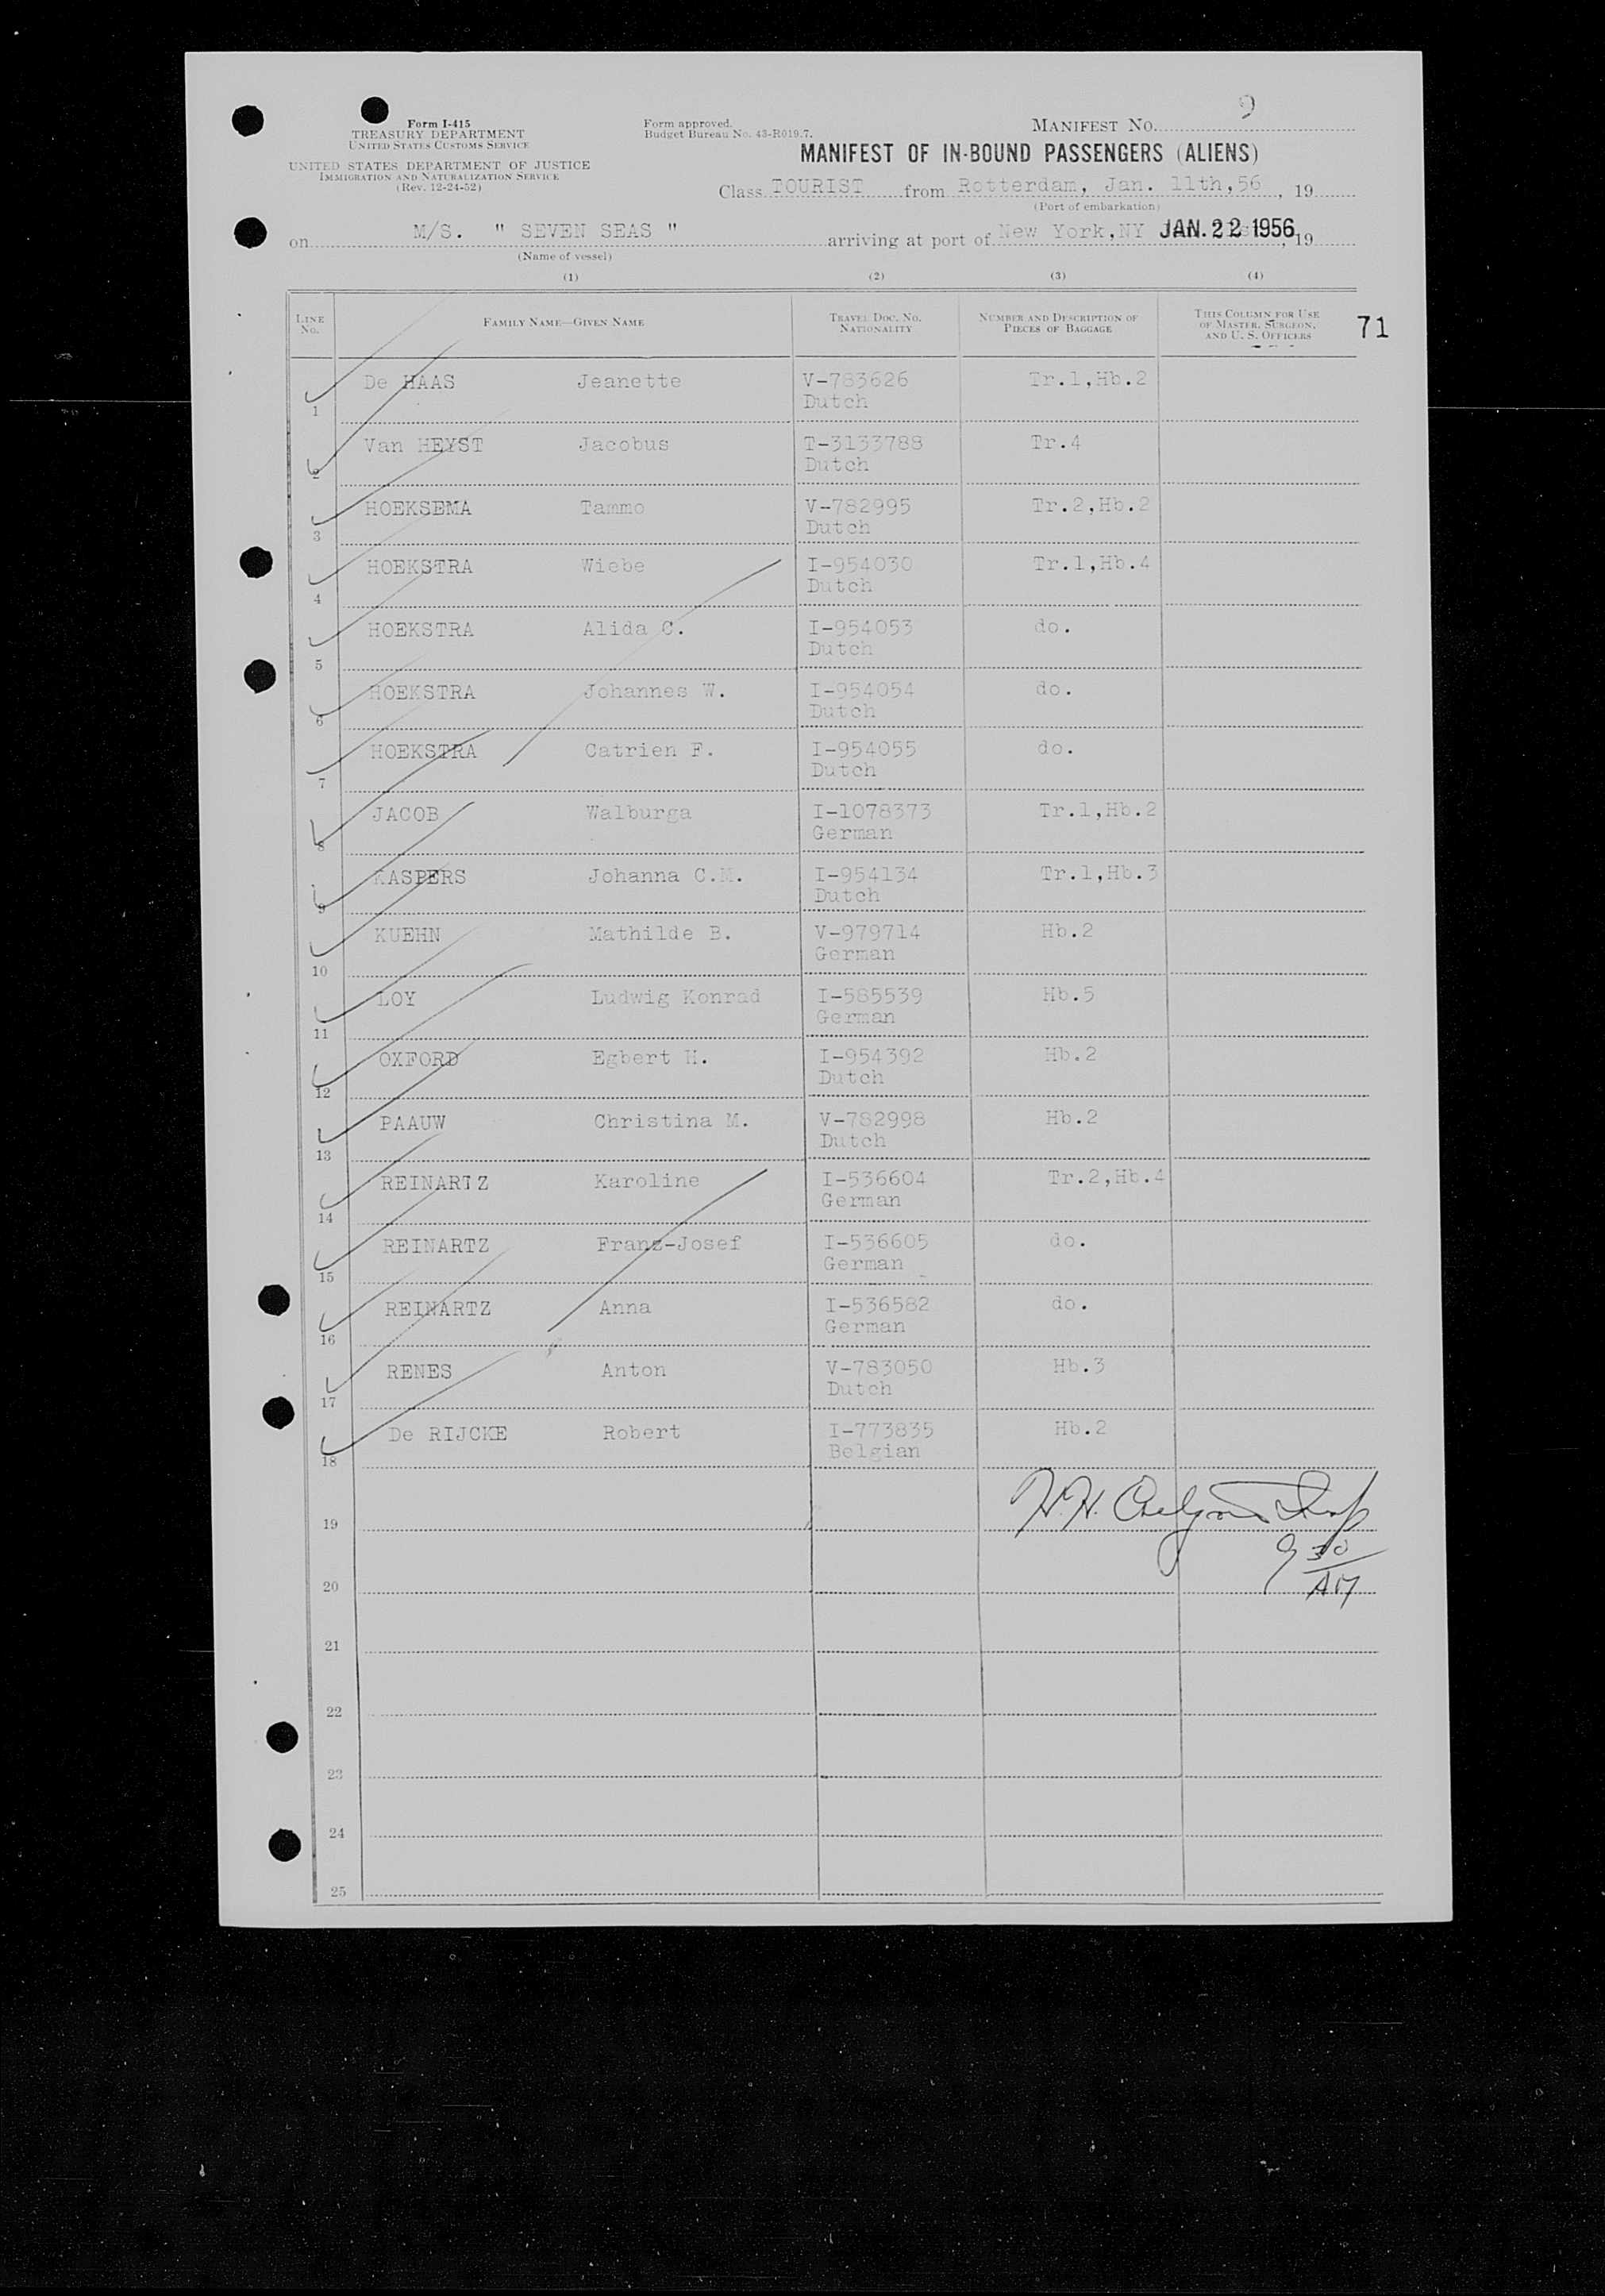 Form I-415
TREASURY DEPARTMENT
UNITED STATES CUSTOMS SERVICE
UNITED STATES DEPARTMENT OF JUSTICE
IMMIGRATION AND NATURALIZATION SERVICE
(Rev. 12-24-52)
Form approved.
Budget Bureau No. 43-R019.7.
MANIFEST NO. 9
MANIFEST OF IN-BOUND PASSENGERS (ALIENS)
Class TOURIST from Rotterdam, Jan. 11th, 56, 19
(Port of embarkation)
on M/S. " SEVEN SEAS " arriving at port of New York, NY JAN. 22 1956, 19
(Name of vessel)
(1) (2) (3) (4)
LINE NO. FAMILY NAME—GIVEN NAME TRAVEL DOC. NO. NATIONALITY NUMBER AND DESCRIPTION OF PIECES OF BAGGAGE THIS COLUMN FOR USE OF MASTER, SURGEON, AND U. S. OFFICERS
71
1 De HAAS Jeanette V-783626 Dutch Tr.1,Hb.2
2 Van HEYST Jacobus T-3133788 Dutch Tr.4
3 HOEKSEMA Tammo V-782995 Dutch Tr.2,Hb.2
4 HOEKSTRA Wiebe I-954030 Dutch Tr.1,Hb.4
5 HOEKSTRA Alida C. I-954053 Dutch do.
6 HOEKSTRA Johannes W. I-954054 Dutch do.
7 HOEKSTRA Catrien F. I-954055 Dutch do.
8 JACOB Walburga I-1078373 German Tr.1,Hb.2
9 KASPERS Johanna C.M. I-954134 Dutch Tr.1,Hb.3
10 KUEHN Mathilde B. V-979714 German Hb.2
11 LOY Ludwig Konrad I-585539 German Hb.5
12 OXFORD Egbert H. I-954392 Dutch Hb.2
13 PAAUW Christina M. V-782998 Dutch Hb.2
14 REINARTZ Karoline I-536604 German Tr.2,Hb.4
15 REINARTZ Franz-Josef I-536605 German do.
16 REINARTZ Anna I-536582 German do.
17 RENES Anton V-783050 Dutch Hb.3
18 De RIJCKE Robert I-773835 Belgian Hb.2
19 H.H.
20 9 30 AM
21
22
23
24
25